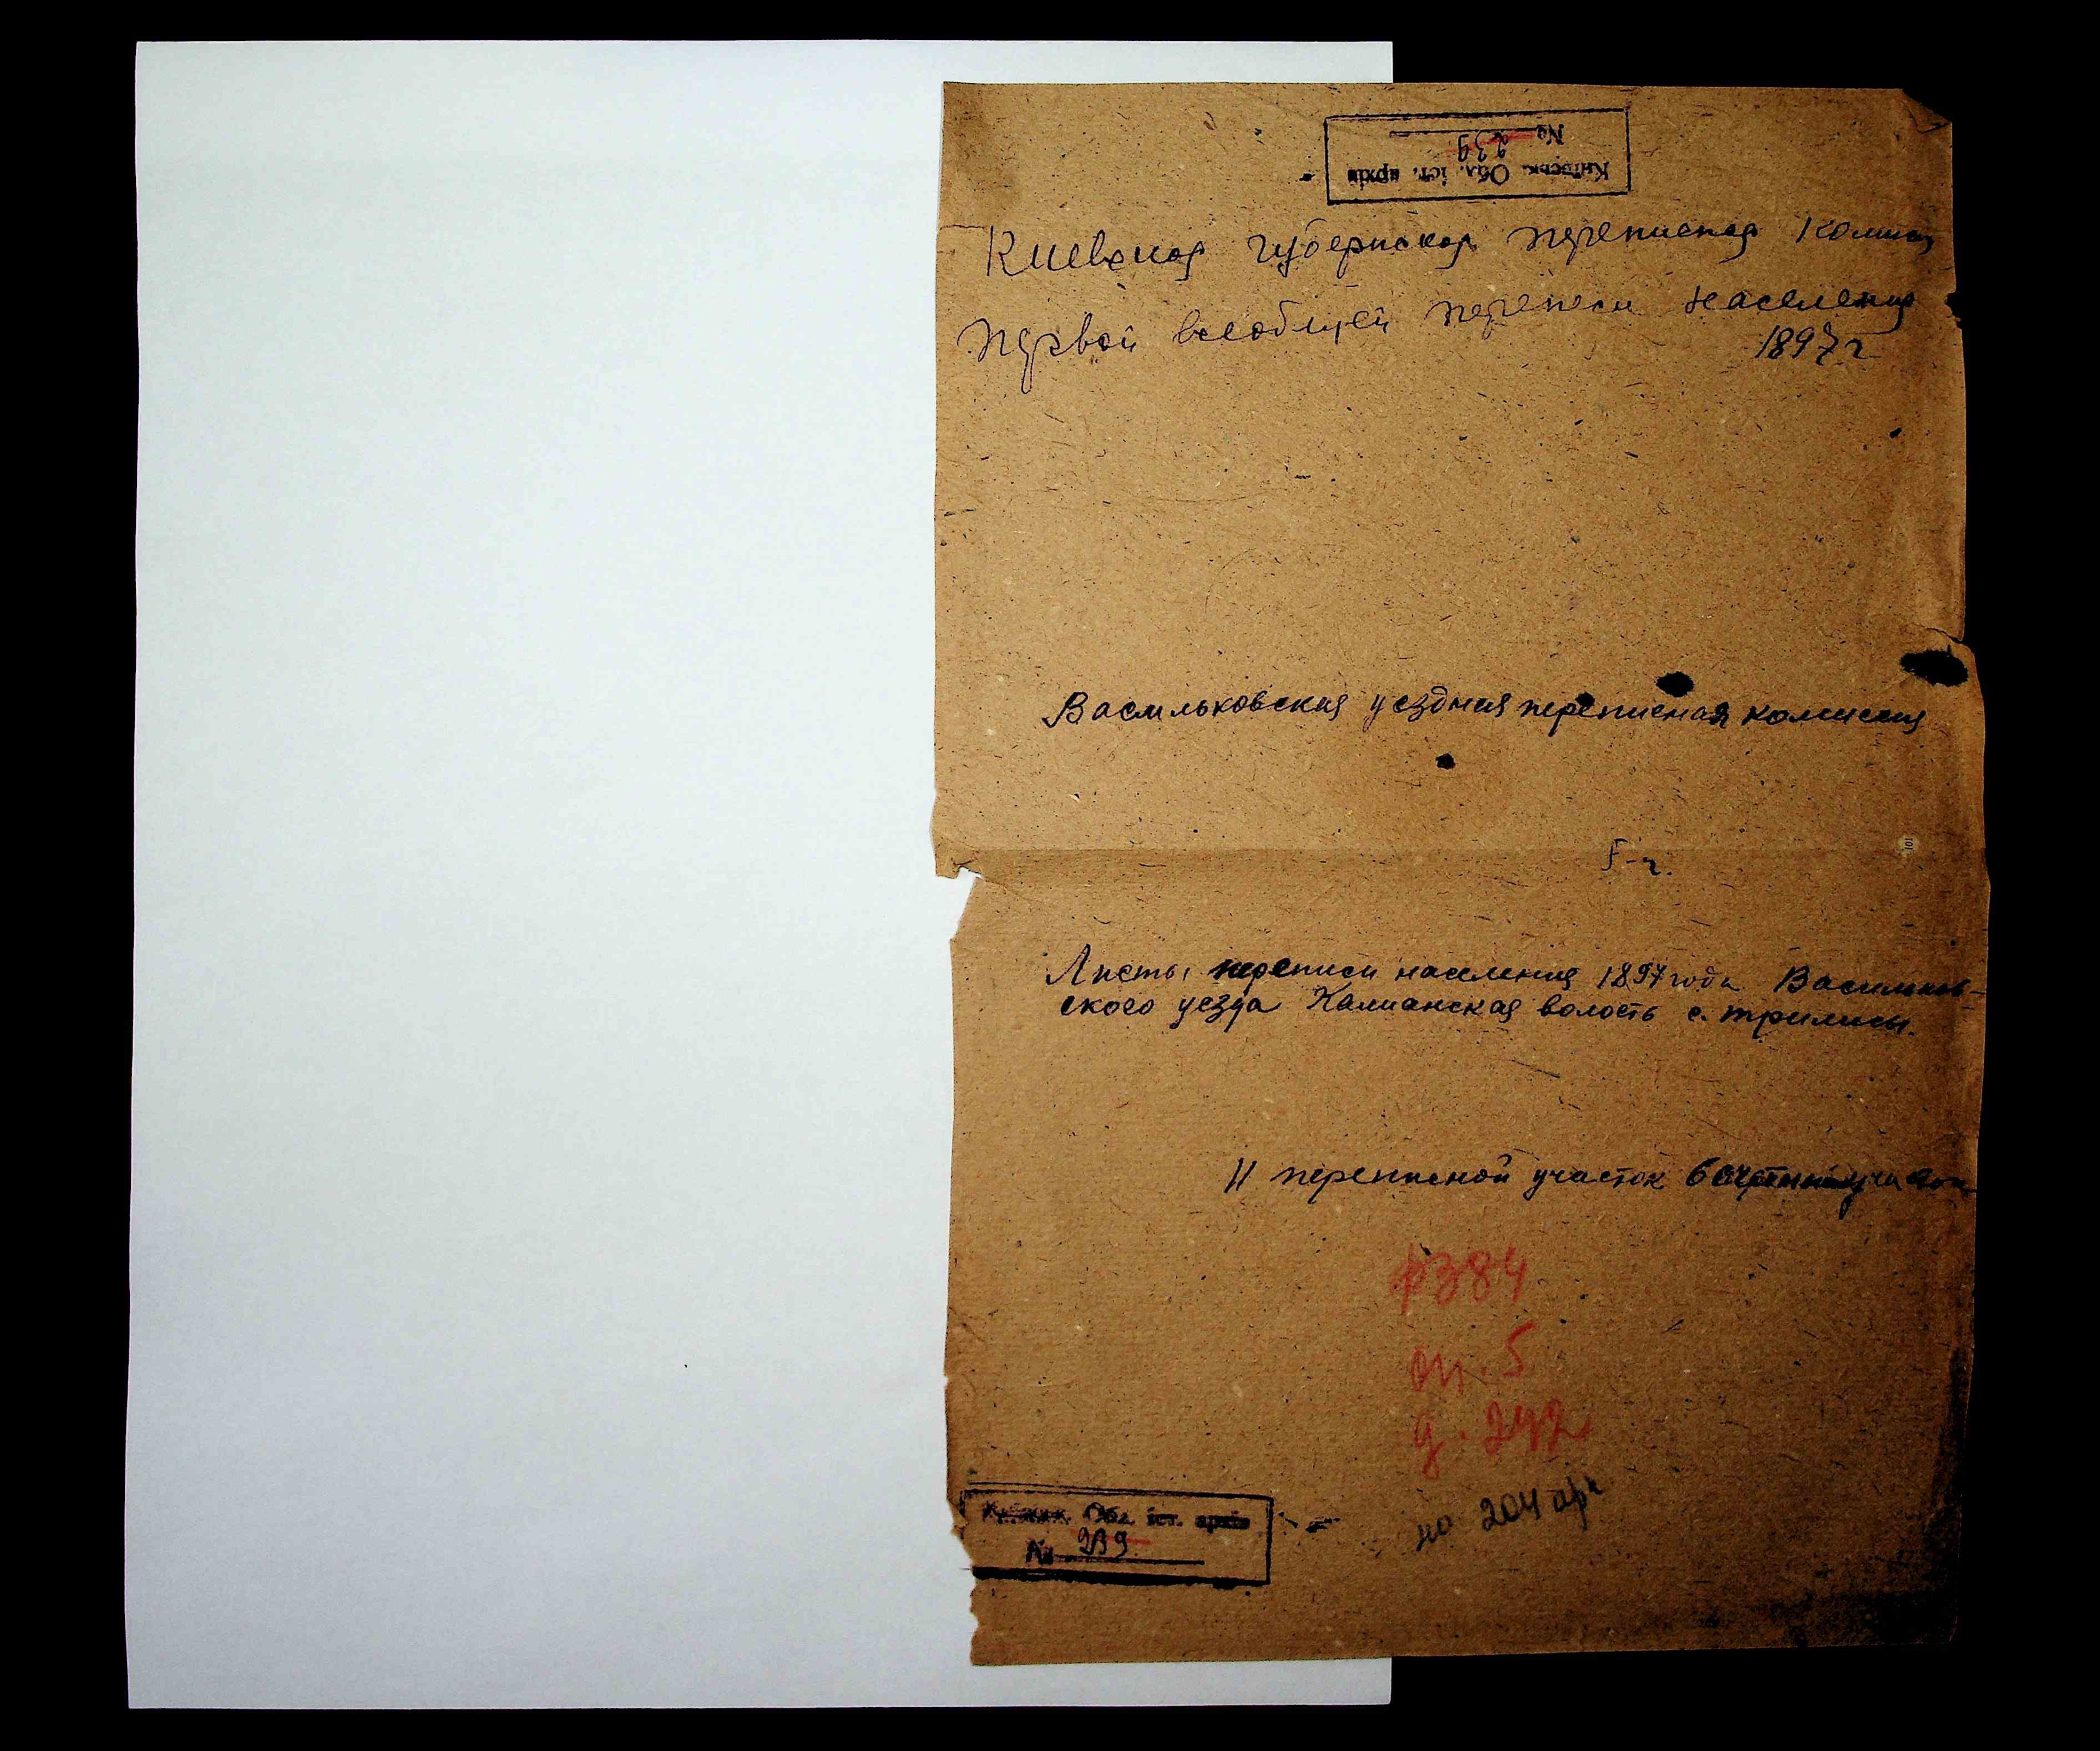 Київськ. Обл. іст. архів
№ 239
Киевская губернская переписная комис
Первой всеобщей переписи населения
1897 г
Васильковская уездная переписная комиссия
Листы переписи населения 1897 года Васильков-
ского уезда Кашанская волость с. Трилисы.
11 переписной участок 6 счетный участок
ф 384
оп. 5
д. 242
на 204 арк
Київськ. Обл. іст. архів
№ 239